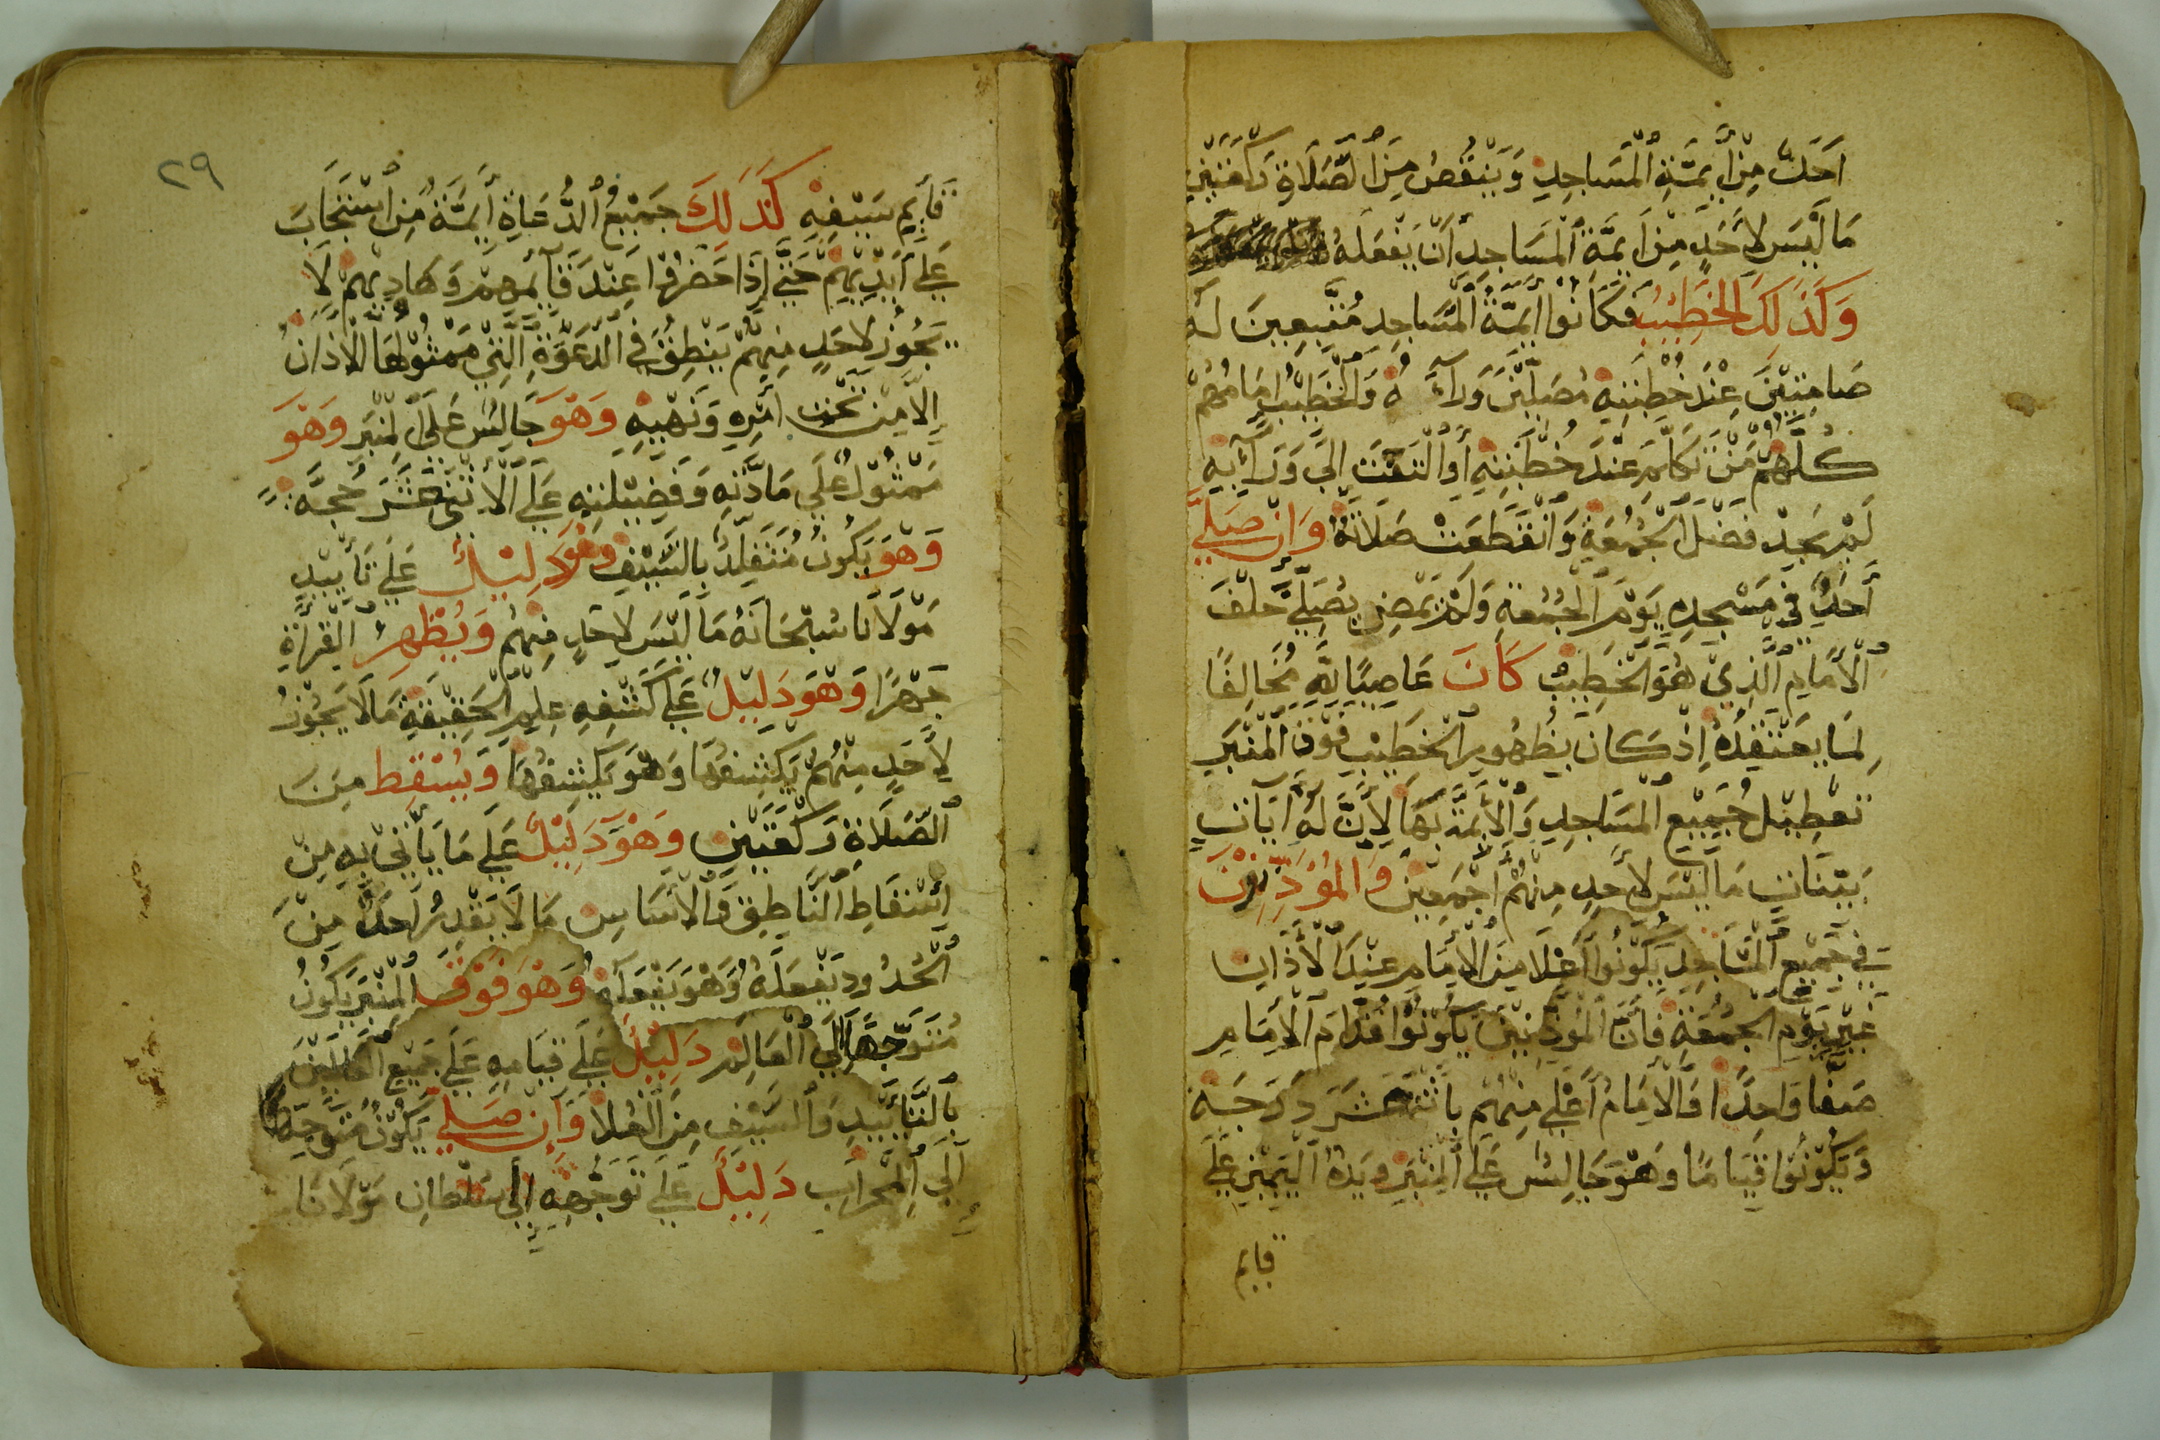 اَحَدٌ مِنْ اَيِمَّةِ ٱلْمَسَاجِدِ وَيَنْقُصُ مِنَ ٱلصَّلَاةِ رَكْعَتَيْنِ
مَا لَيْسَ لِاَحَدٍ مِنْ اَيِمَّةِ ٱلْمَسَاجِدِ اَنْ يَفْعَلَهُ
وَكَذَلِكَ الخَطِيْبُ فَكَانُوْا اَيِمَّةُ ٱلْمَسَاجِدِ مُتَّبِعِينَ لَهُ
صَامِتِيْنَ عِنْدَ خُطْبَتِهِ مُصَلِّيْنَ وَرَآءَهُ وَٱلْخَطِيْبُ اِمَامُهُمْ
كُلُّهُمْ مَنْ تَكَلَّمَ عِنْدَ خُطْبَتِهِ أَوِ ٱلْتَفَتَ إِلَى وَرَآئِهِ
لَمْ يَجِدْ فَضْلَ ٱلْجُمْعَةِ وَٱنْقَطَعَتْ صَلَاتُهُ وَاِنْ صَلَّى
أَحَدٌ فِي مَسْجِدِهِ يَوْمَ ٱلْجُمُعَةِ وَلَمْ يَمْضِ يُصَلِّي خَلْفَ
ٱلْاِمَامِ ٱلَّذِيْ هُوَ ٱلْخَطِيْبُ كَانَ عَاصِيًا لِلَّهِ مُخَالِفًا
لِمَا يَعْتَقِدُهُ اِذْ كَانَ بِظُهُورِ ٱلْخَطِيْبِ فَوْقَ ٱلْمِنْبَرِ
تَعْطِيْلُ جَمِيْعِ ٱلْمَسَاجِدِ وَٱلْأَيِمَّةِ بِهَا لِاَنَّ لَهُ آيَاتٍ
بَيِّنَاتٍ مَا لَيْسَ لِأَحَدٍ مِنْهُمْ اَجْمَعِيْنَ وَالمُؤَذِّنِيْنَ
فِي جَمِيْعِ ٱلْمَسَاجِدِ يَكُوْنُوْا أَعْلَا مِنَ ٱلْاِمَامِ عِنْدَ ٱلْأَذَانِ
غَيْرِ يَوْمِ ٱلْجُمُعَةِ فَاِنَّ ٱلْمُوَذِّنِيْنَ يَكُوْنُوْا قُدَّامَ ٱلْاِمَامِ
صَفًّا وَاحِدًا وَٱلْاِمَامُ أَعْلَى مِنْهُمْ بِاثْنَتَيْ عَشَرَ دَرَجَةً
وَيَكُوْنُوْا قِيَامًا وَهْوَ جَالِسٌ عَلَى ٱلْمِنْبَرِ وَيَدُهُ ٱلْيَمِيْنِ عَلَى
قايم
٢٩
قَايِمِ سَيْفِهِ كَذَلِكَ جَمِيْعُ ٱلدُّعَاةِ أَيِمَّةٌ مَنِ ٱسْتَجَابَ
عَلَى اَيْدِيْهِمْ حَتَّى إِذَا حَضَرُوْا عِنْدَ قَايِمِهِمْ وَهَادِيْهِمْ لَا
يَجُوْزُ لِاَحَدٍ مِنْهُمْ يَنْطِقُ فِي ٱلدَّعْوَةِ ٱلَّتِيْ مَمْثُوْلُهَا ٱلْاَذَانُ
إِلَّا مِنْ تَحْتِ أَمْرِهِ وَنَهْيِهِ وَهْوَ جَالِسٌ عَلَى ٱلْمِنْبَرِ وَهْوَ
مَمْثُوْلٌ عَلَى مَادَّتِهِ وَفَضِيْلَتِهِ عَلَى ٱلْاِثْنَيْ عَشَرَ حُجَّةً
وَهْوَ يَكُونُ مُتَقَلِّدٌ بِالسَّيْفِ وَهْوَ دَلِيْلٌ عَلَى تَأْيِيْدِ
مَوْلَانَا سُبْحَانَهُ مَا لَيْسَ لِاَحَدٍ مِنْهُمْ وَيُظْهِرُ ٱلْقِرَأَةَ
جَهْرًا وَهْوَ دَلِيْلٌ عَلَى كَشْفِهِ عِلْمَ ٱلْحَقِيْقَةِ مَا لَا يَجُوْزُ
لِأَحَدٍ مِنْهُمْ يَكْشِفُهَا وَهْوَ يَكْشِفُهَا وَيُسْقِطُ مِنَ
ٱلصَّلَاةِ رَكْعَتَيْنِ وَهْوَ دَلِيْلٌ عَلَى مَا يَأْتِيْ بِهِ مِنْ
اِسْقَاطِ ٱلنَّاطِقِ وَٱلْاَسَاسِ مَا لَا يَقْدِرُ اَحَدٌ مِنَ
ٱلْحُدُودِ يَفْعَلُهُ وَهْوَ يَفْعَلُهُ وَهْوَ فَوْقَ ٱلْمِنْبَرِ يَكُونُ
مُتَوَجِّهًا إِلَى ٱلْعَالَمِ دَلِيْلٌ عَلَى قِيَامِهِ عَلَى جَمِيْعِ ٱلْعَالَمِيْنَ
بِالتَّأْيِيْدِ وَٱلسَّيْفِ مِنَ ٱلْعُلَا وَاِنْ صَلَّى يَكُوْنُ مُتَوَجِّهًا
اِلَى ٱلْمِحْرَابِ دَلِيْلٌ عَلَى تَوَجُّهِهِ إِلَى سُلْطَانِ مَوْلَانَا